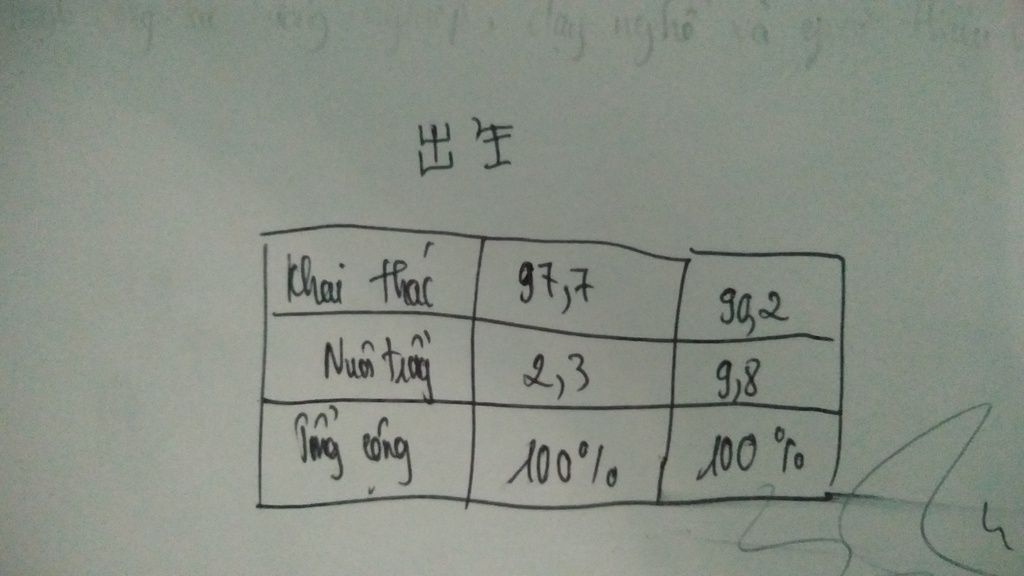 出生
Khai thác 97,7 90,2
Nuôi trồng 2,3 9,8
Tổng cộng 100% 100%